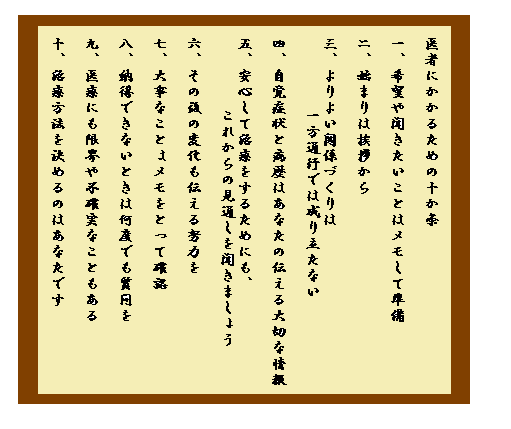 医者にかかるための十か条
一、希望や聞きたいことはメモして準備
二、始まりは挨拶から
三、よりよい関係づくりは
一方通行では成り立たない
四、自覚症状と病歴はあなたの伝える大切な情報
五、安心して治療をするためにも、
これからの見通しを聞きましょう
六、その後の変化も伝える努力を
七、大事なことはメモをとって確認
八、納得できないときは何度でも質問を
九、医療にも限界や不確実なこともある
十、治療方法を決めるのはあなたです